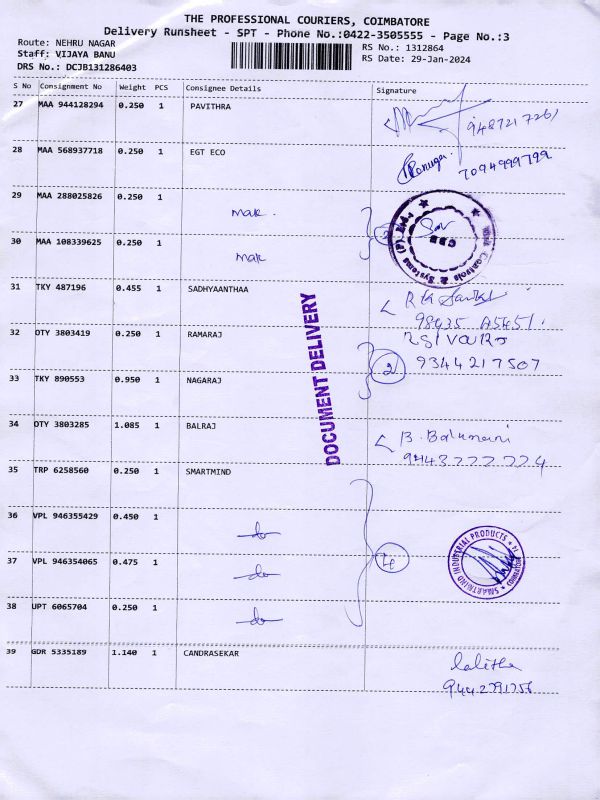 THE PROFESSIONAL COURIERS, COIMBATORE
Delivery Runsheet - SPT - Phone No.:0422-3505555 - Page No.:3
Route: NEHRU NAGAR
RS No.: 1312864
Staff: VIJAYA BANU
RS Date: 29-Jan-2024
DRS No.: DCJB131286403
S No Consignment No Weight PCS Consignee Details Signature
27 MAA 944128294 0.250 1 PAVITHRA
28 MAA 568937718 0.250 1 EGT ECO
7094999799
29 MAA 288025826 0.250 1 mak.
30 MAA 108339625 0.250 1 mak
31 TKY 487196 0.455 1 SADHYAANTHAA
32 OTY 3803419 0.250 1 RAMARAJ
9344217507
33 TKY 890553 0.950 1 NAGARAJ
2
34 OTY 3803285 1.085 1 BALRAJ
DOCUMENT DELIVERY
35 TRP 6258560 0.250 1 SMARTMIND
36 VPL 946355429 0.450 1 do
37 VPL 946354065 0.475 1 do
SMARTMIND INDUSTRIAL PRODUCTS
38 UPT 6065704 0.250 1 do
39 GDR 5335189 1.140 1 CANDRASEKAR lalitha